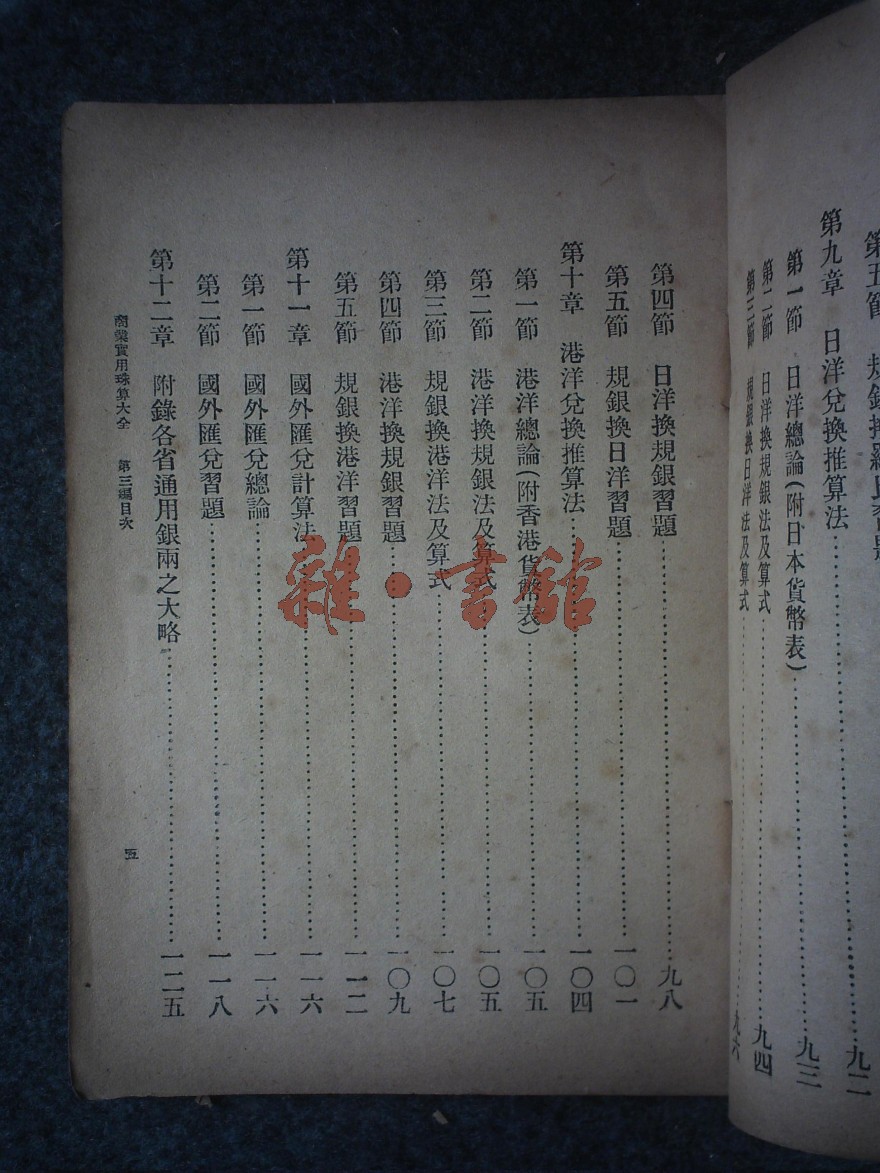 第九章　日洋兌換推算法……九二
第一節　日洋總論(附日本貨幣表)……九三
第二節　日洋換規銀法及算式……九四
第三節　規銀換日洋法及算式……九六
第四節　日洋換規銀習題……九八
第五節　規銀換日洋習題……一〇一
第十章　港洋兌換推算法……一〇四
第一節　港洋總論(附香港貨幣表)……一〇五
第二節　港洋換規銀法及算式……一〇五
第三節　規銀換港洋法及算式……一〇七
第四節　港洋換規銀習題……一〇九
第五節　規銀換港洋習題……一一二
第十一章　國外匯兌計算法……一一六
第一節　國外匯兌總論……一一六
第二節　國外匯兌習題……一一八
第十二章　附錄各省通用銀兩之大略……一二五
商業實用珠算大全　第三編目次　五
雜·書館